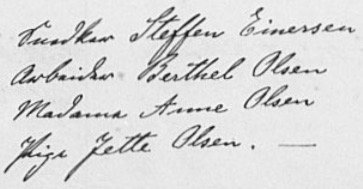 Snedker Steffen Einersen
Arbeider Berthel Olsen
Madame Anne Olsen
Pige Jette Olsen. —